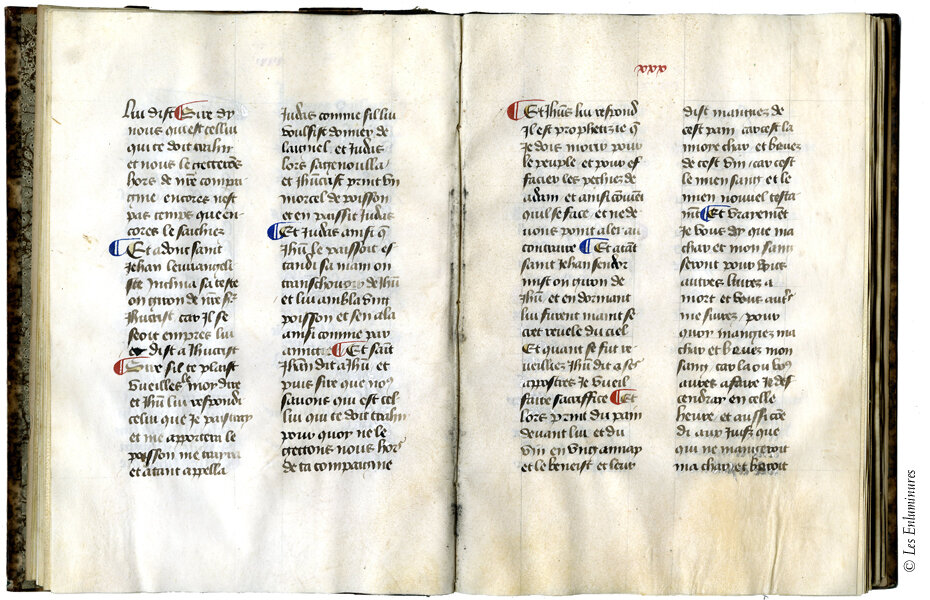 Lui dist Sire dy
nous qui est cellui
qui te doit trahir
et nous le getterons
hors de nre compai
gnie encores nest
pas temps que en
cores le saichiez
Et adont saint
Jehan leuvangeli
ste inclina sa teste
ou giron de nre sr
Jhucrist car il se
seoit empres lui
et dist a Jhucrist
Sire sil te plaist
vueilles le moy dire
et Jhus lui respondi
celui que Je paistray
et me apportera le
poisson me trayra
et atant appella
Judas comme sil lui
voulsist donner de
laignel et Judas
lors sagenoulla
et Jhucrist print un
morcel de poisson
et en paissit Judas
Et Judas ainsi q
Jhus le paissoit es
tandi sa main ou
de Jhus
et lui embla ung
poisson et sen ala
ainsi comme par
Et saint
Jehan dit a Jhus et
puis sire que nous
savons qui est cel
lui qui te doit trahir
pour quoy ne le
gettons nous hors
de ta compaignie
xxx
Et Jhus lui respond
Il est prophetizie q
Je dois morir pour
le peuple et pour ef
facier les pechies de
adam et ainsi convient
quil se face et ne de
vons point aler au
contraire Et atant
saint Jehan sendor
mist ou giron de
Jhus et en dormant
lui furent maint se
cret revele du ciel
Et quant se fut re
veilliez Jhus dit a ses
appostres Je vueil
faire sacriffice Et
lors print du pain
devant lui et du
vin en ung annap
et le beneist et leur
dist manguez de
cest pain car cest la
moye char et buvez
de cest vin car cest
le mien sang et le
mien nouvel testa
ment Et vrayement
Je vous dy que ma
char et mon sang
seront pour vous
autres livrez a
mort et vous autres
me suivez pour
quoy mangiez ma
char et buvez mon
sang car la ou vous
avres a faire Je des
cendray en celle
heure et aussi
di aux Juifz que
qui ne mangeroit
ma char et buroit
© Les Enluminures